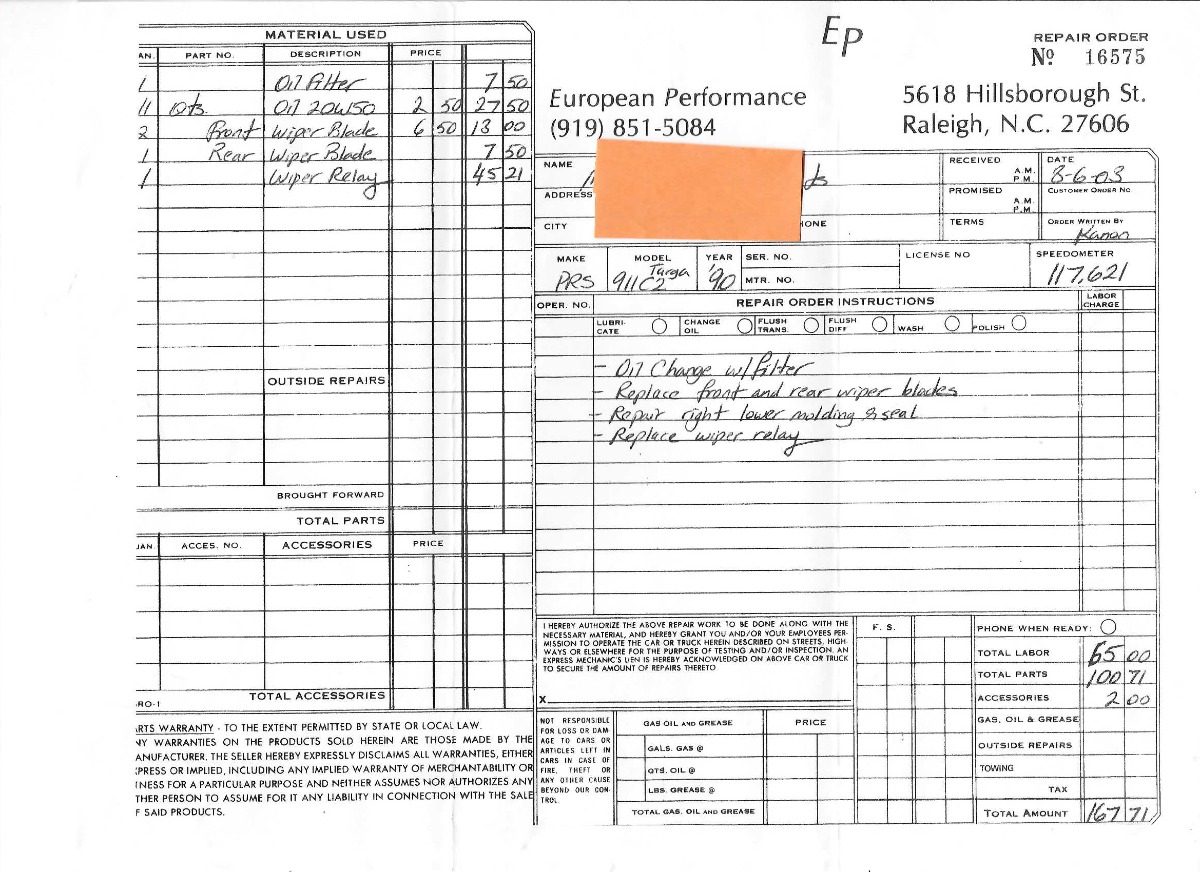 MATERIAL USED
AN. PART NO. DESCRIPTION PRICE
1 Oil Filter 7 50
11 Qts. Oil 20W50 2 50 27 50
2 Front Wiper Blade 6 50 13 00
1 Rear Wiper Blade 7 50
1 Wiper Relay 45 21
OUTSIDE REPAIRS
BROUGHT FORWARD
TOTAL PARTS
UAN. ACCES. NO. ACCESSORIES PRICE
TOTAL ACCESSORIES
RO-1
ARTS WARRANTY - TO THE EXTENT PERMITTED BY STATE OR LOCAL LAW.
NY WARRANTIES ON THE PRODUCTS SOLD HEREIN ARE THOSE MADE BY THE
ANUFACTURER. THE SELLER HEREBY EXPRESSLY DISCLAIMS ALL WARRANTIES, EITHER
XPRESS OR IMPLIED, INCLUDING ANY IMPLIED WARRANTY OF MERCHANTABILITY OR
INESS FOR A PARTICULAR PURPOSE AND NEITHER ASSUMES NOR AUTHORIZES ANY
THER PERSON TO ASSUME FOR IT ANY LIABILITY IN CONNECTION WITH THE SALE
F SAID PRODUCTS.
Ep
REPAIR ORDER
Nº 16575
European Performance
(919) 851-5084
5618 Hillsborough St.
Raleigh, N.C. 27606
NAME
ADDRESS
CITY
HONE
RECEIVED A.M. P.M.
PROMISED A.M. P.M.
TERMS
DATE 8-6-03
CUSTOMER ORDER NO
ORDER WRITTEN BY
Karren
MAKE PRS
MODEL 911C2 Targa
YEAR '90
SER. NO.
MTR. NO.
LICENSE NO
SPEEDOMETER 117,621
OPER. NO. REPAIR ORDER INSTRUCTIONS LABOR CHARGE
LUBRI-CATE CHANGE OIL FLUSH TRANS. FLUSH DIFF WASH POLISH
- Oil Change w/filter
- Replace front and rear wiper blades
- Repair right lower molding & seal
- Replace wiper relay
I HEREBY AUTHORIZE THE ABOVE REPAIR WORK TO BE DONE ALONG WITH THE
NECESSARY MATERIAL, AND HEREBY GRANT YOU AND/OR YOUR EMPLOYEES PER-
MISSION TO OPERATE THE CAR OR TRUCK HEREIN DESCRIBED ON STREETS, HIGH-
WAYS OR ELSEWHERE FOR THE PURPOSE OF TESTING AND/OR INSPECTION. AN
EXPRESS MECHANIC'S LIEN IS HEREBY ACKNOWLEDGED ON ABOVE CAR OR TRUCK
TO SECURE THE AMOUNT OF REPAIRS THERETO
X
NOT RESPONSIBLE
FOR LOSS OR DAM-
AGE TO CARS OR
ARTICLES LEFT IN
CARS IN CASE OF
FIRE, THEFT OR
ANY OTHER CAUSE
BEYOND OUR CON-
TROL.
GAS OIL AND GREASE PRICE
GALS. GAS @
QTS. OIL @
LBS. GREASE @
TOTAL GAS, OIL AND GREASE
F. S.
PHONE WHEN READY:
TOTAL LABOR 65 00
TOTAL PARTS 100 71
ACCESSORIES 2 00
GAS, OIL & GREASE
OUTSIDE REPAIRS
TOWING
TAX
TOTAL AMOUNT 167 71